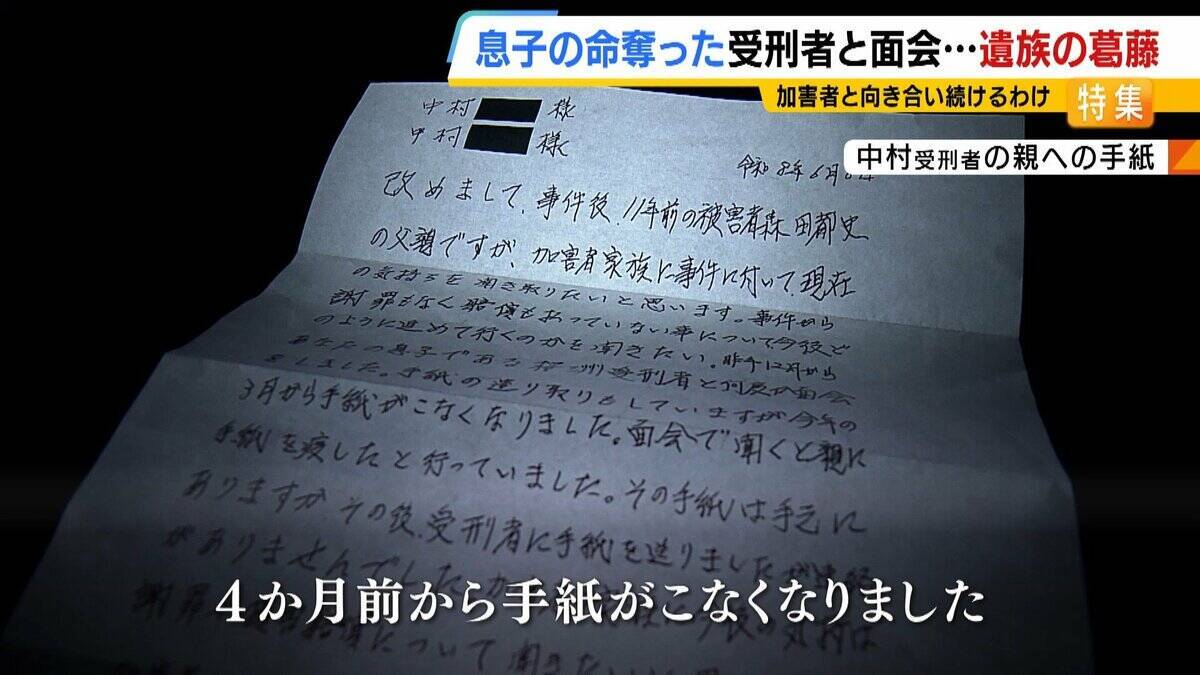 息子の命奪った受刑者と面会…遺族の葛藤
加害者と向き合い続けるわけ
特集
中村受刑者の親への手紙
中村 様
中村 様
令和8年6月
改めまして、事件後、11年前の被害者森田都史
の父親ですが、加害者家族に事件に付いて、現在
の気持ちを聞き取りたいと思います。事件から
謝罪もなく賠償も払っていない事について今後ど
のように進めて行くのかを聞きたい。昨年12月から
あなたの息子である 受刑者と 面会
をしました。手紙の送り取りもしていますが今年の
3月から手紙がこなくなりました。面会で聞くと親に
手紙を渡したと行っていました。その手紙は手元に
ありますか、その後、受刑者に手紙を送りましたが連絡
がありませんでした
謝罪 賠償について聞きたい
4か月前から手紙がこなくなりました